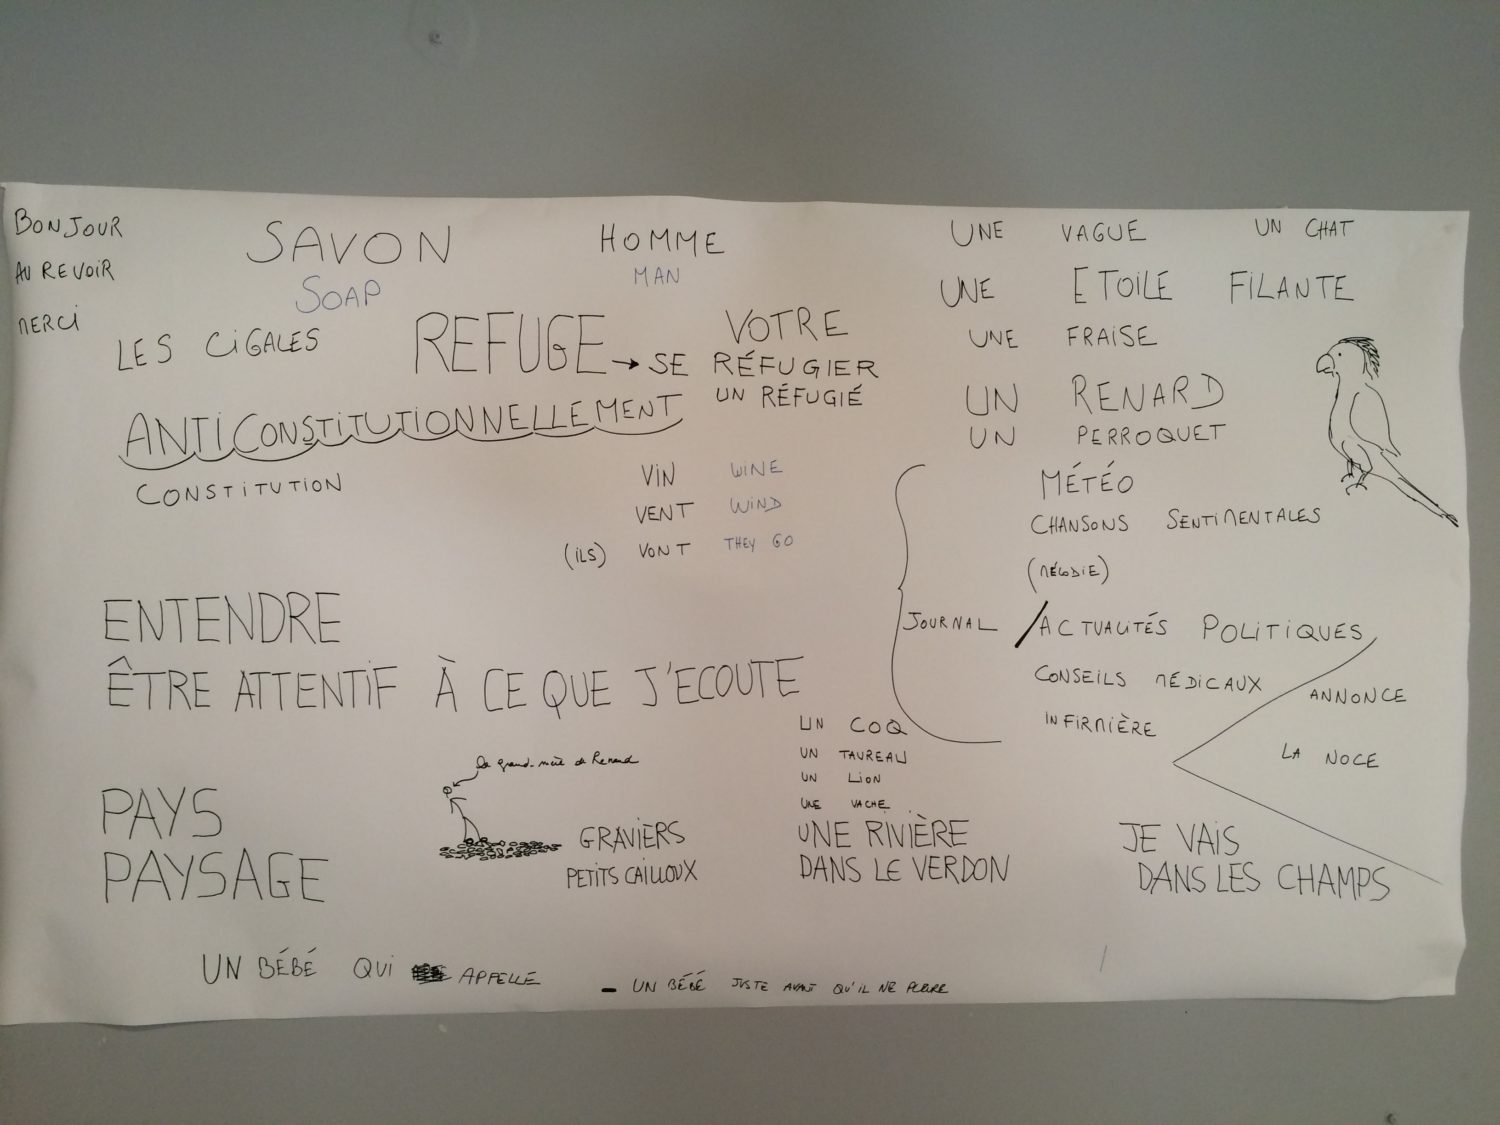 BONJOUR
AU REVOIR
MERCI
SAVON
SOAP
HOMME
MAN
LES CIGALES
REFUGE → SE RÉFUGIER
VOTRE
UN RÉFUGIÉ
ANTICONSTITUTIONNELLEMENT
CONSTITUTION
VIN WINE
VENT WIND
(ILS) VONT THEY GO
UNE VAGUE
UN CHAT
UNE ETOILE FILANTE
UNE FRAISE
UN RENARD
UN PERROQUET
MÉTÉO
CHANSONS SENTIMENTALES
(MÉLODIE)
JOURNAL / ACTUALITÉS POLITIQUES
CONSEILS MÉDICAUX
INFIRMIÈRE
ANNONCE
LA NOCE
ENTENDRE
ÊTRE ATTENTIF À CE QUE J'ECOUTE
UN COQ
UN TAUREAU
UN LION
UNE VACHE
PAYS
PAYSAGE
la grand-mère de Renaud
GRAVIERS
PETITS CAILLOUX
UNE RIVIÈRE
DANS LE VERDON
JE VAIS
DANS LES CHAMPS
UN BÉBÉ QUI APPELLE
- UN BÉBÉ JUSTE AVANT QU'IL NE PLEURE